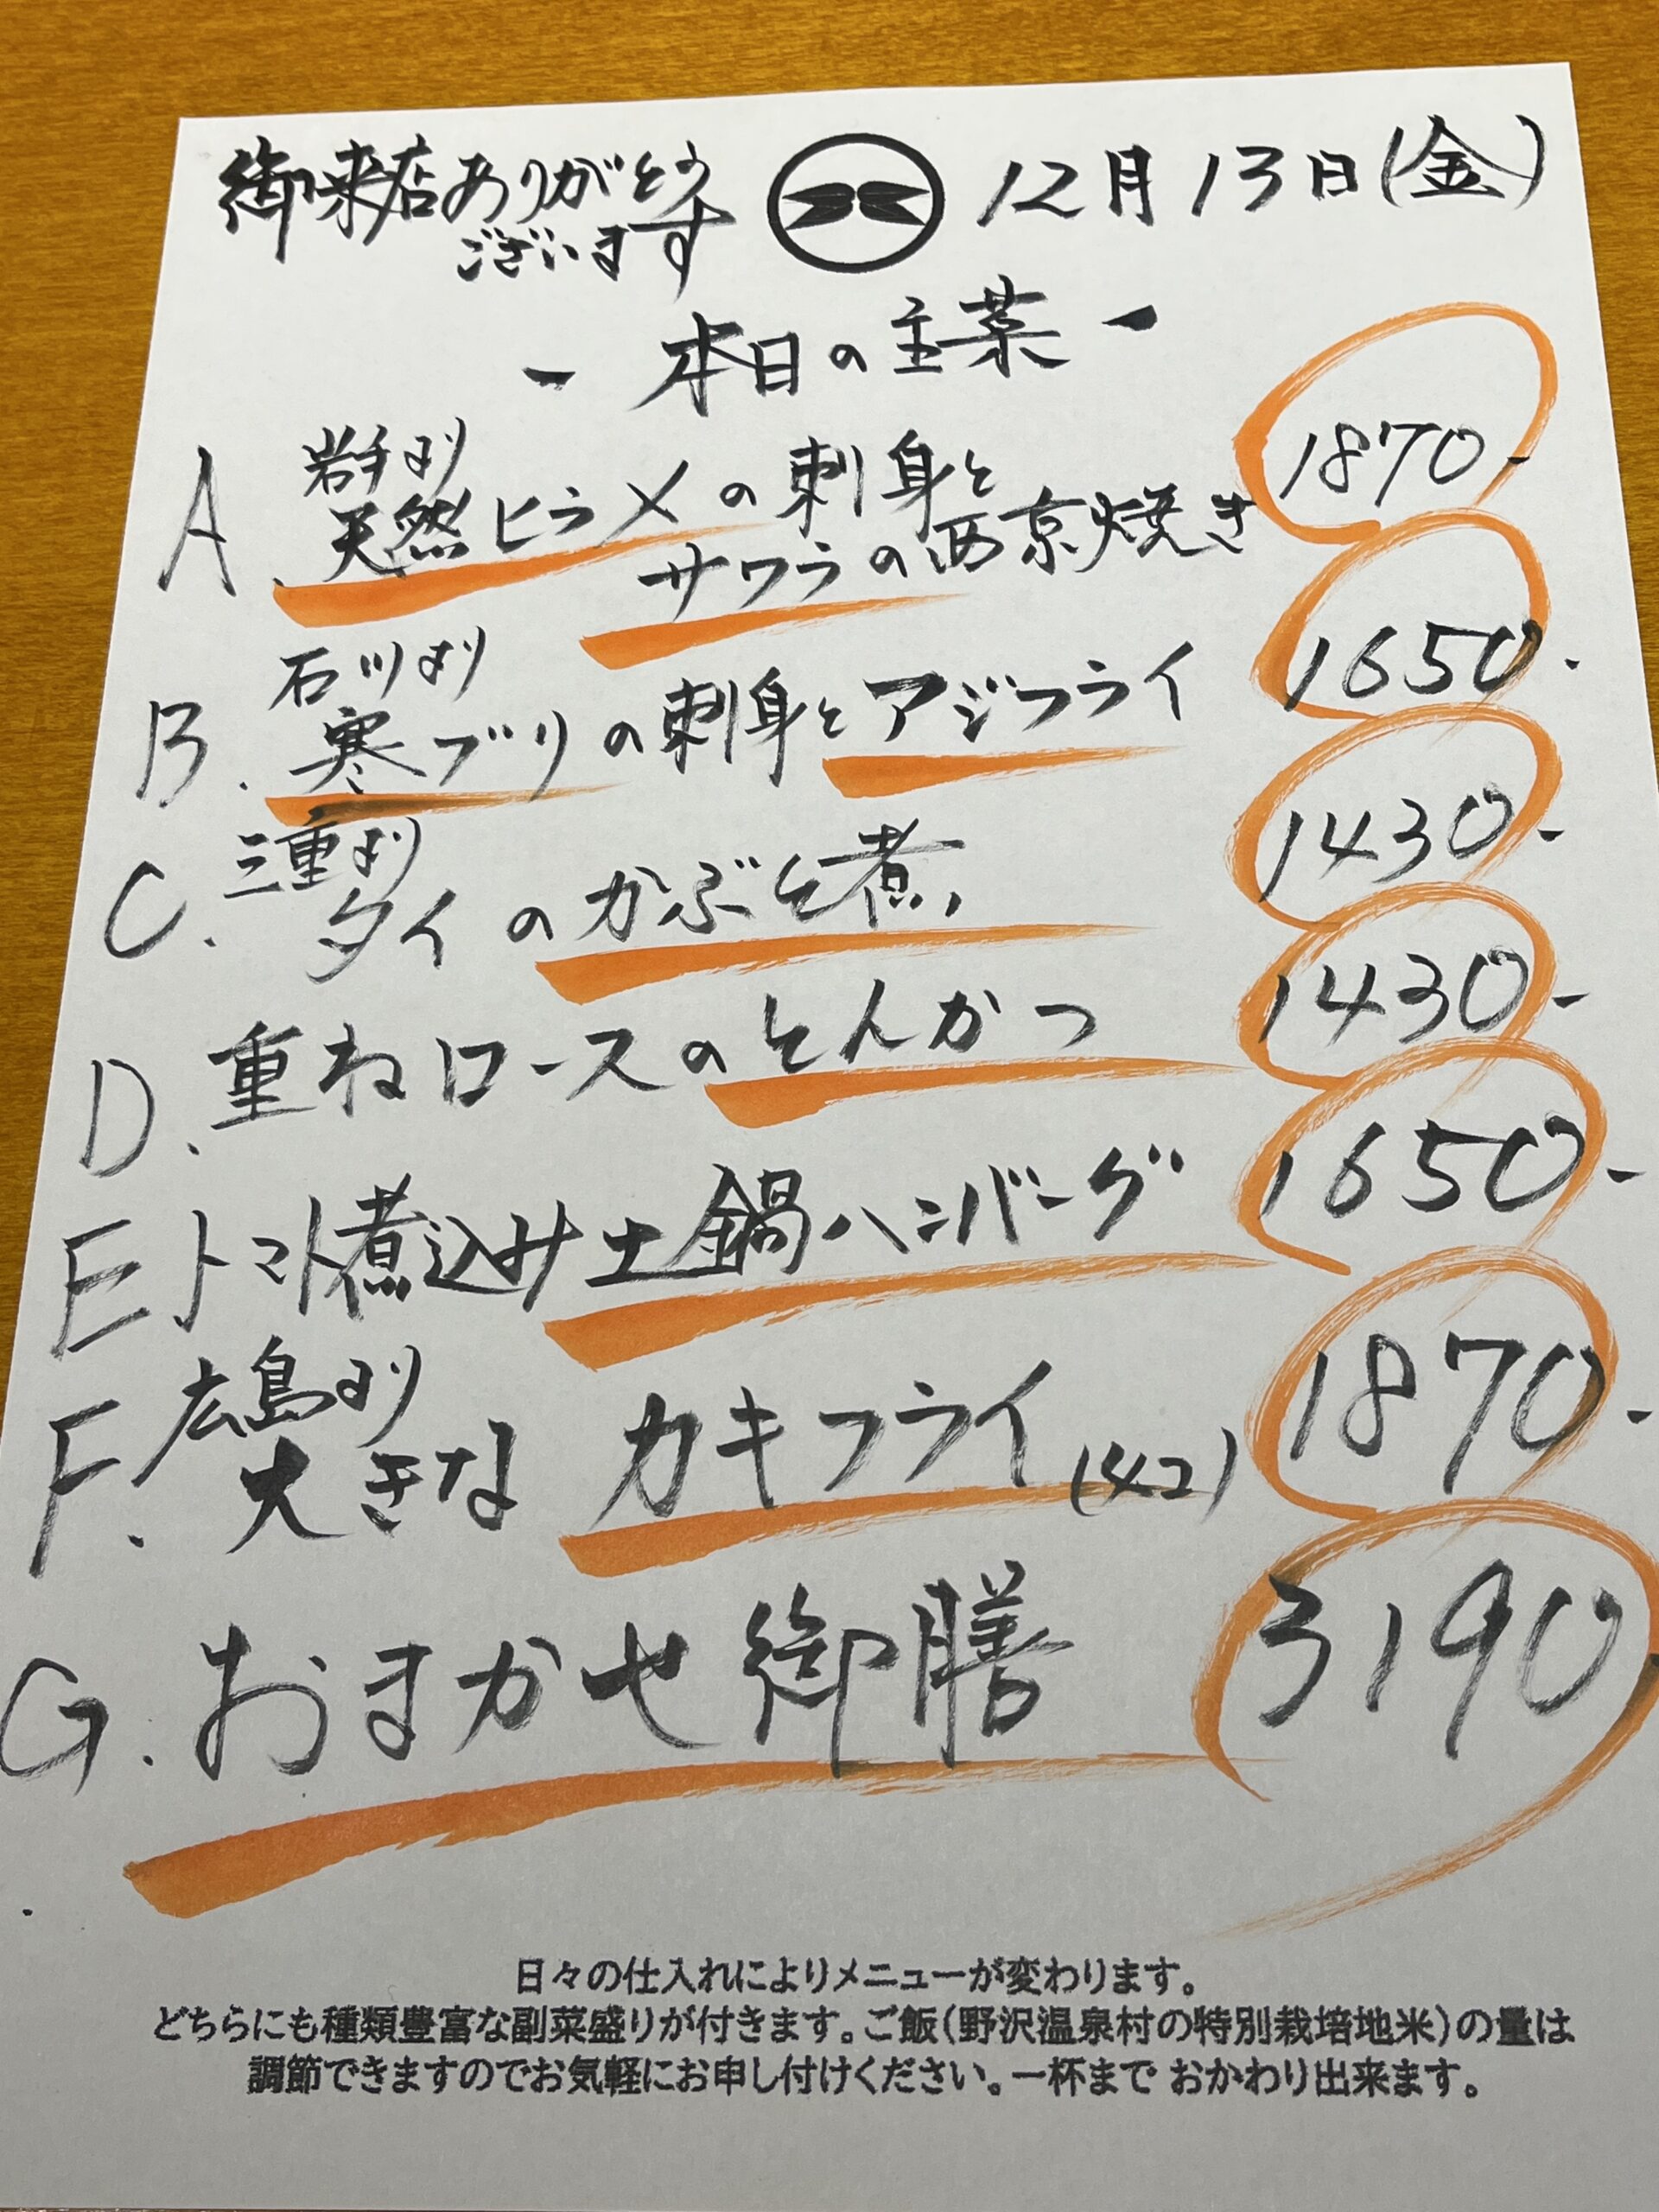 御来店ありがとう
ございます
12月13日(金)
- 本日の主菜 -
A. 岩手より
天然ヒラメの刺身と
サワラの西京焼き
1870-
B. 石川より
寒ブリの刺身とアジフライ
1650-
C. 三重より
タイのかぶと煮
1430-
D. 重ねロースのとんかつ
1430-
E トマト煮込み土鍋ハンバーグ
1650-
F. 広島より
大きな カキフライ(4コ)
1870-
G. おまかせ御膳
3190
日々の仕入れによりメニューが変わります。
どちらにも種類豊富な副菜盛りが付きます。ご飯(野沢温泉村の特別栽培地米)の量は
調節できますのでお気軽にお申し付けください。一杯まで おかわり出来ます。